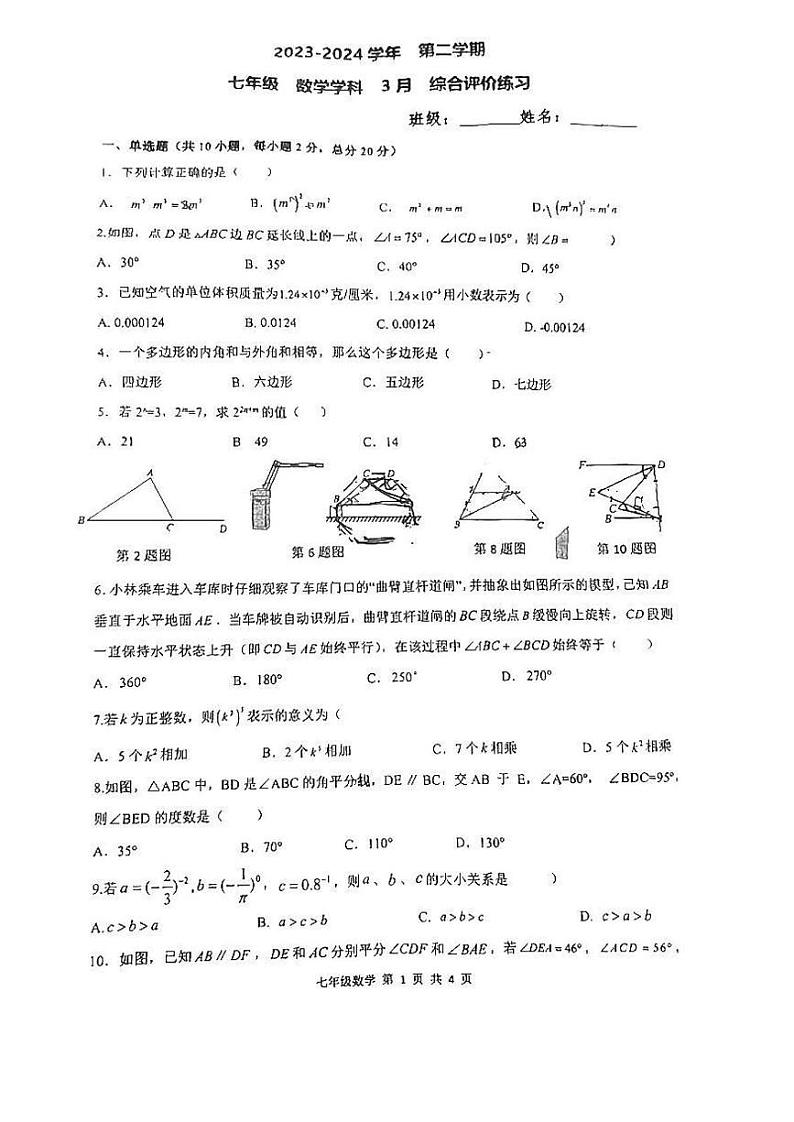 2023-2024学年 第二学期
七年级 数学学科 3月 综合评价练习
班级：______姓名：______
一、单选题（共10小题，每小题2分，总分20分）
1．下列计算正确的是（ ）
A． m³ m³ = 2m³ B． C． D．
2.如图，点D是△ABC边BC延长线上的一点，∠A=75°，∠ACD=105°，则∠B= ）
A．30° B．35° C．40° D．45°
3．已知空气的单位体积质量为1.24×10⁻³克/厘米，1.24×10⁻³用小数表示为（ ）
A. 0.000124 B. 0.0124 C. 0.00124 D. -0.00124
4．一个多边形的内角和与外角和相等，那么这个多边形是（ ）
A．四边形 B．六边形 C．五边形 D．七边形
5．若2ⁿ=3，2ᵐ=7，求2²ⁿ⁺ᵐ的值（ ）
A．21 B 49 C．14 D．63
A B C D
B C D A E
A B C
F D E C B
第2题图 第6题图 第8题图 第10题图
6．小林乘车进入车库时仔细观察了车库门口的“曲臂直杆道闸”，并抽象出如图所示的模型，已知AB
垂直于水平地面AE．当车牌被自动识别后，曲臂直杆道闸的BC段绕点B缓慢向上旋转，CD段则
一直保持水平状态上升（即CD与AE始终平行），在该过程中∠ABC+∠BCD始终等于（ ）
A．360° B．180° C．250° D．270°
7.若k为正整数，则 表示的意义为（
A．5个k²相加 B．2个k⁵相加 C．7个k相乘 D．5个k²相乘
8.如图，△ABC中，BD是∠ABC的角平分线，DE∥BC，交AB于E，∠A=60°，∠BDC=95°，
则∠BED的度数是（ ）
A．35° B．70° C．110° D．130°
9.若a=(-2/3)⁻²,b=(-1/π)⁰，c=0.8⁻¹，则a、b、c的大小关系是 ）
A.c>b>a B. a>c>b C. a>b>c D. c>a>b
10．如图，已知AB∥DF，DE和AC分别平分∠CDF和∠BAE，若∠DEA=46°，∠ACD=56°，
七年级数学 第 1 页 共 4 页